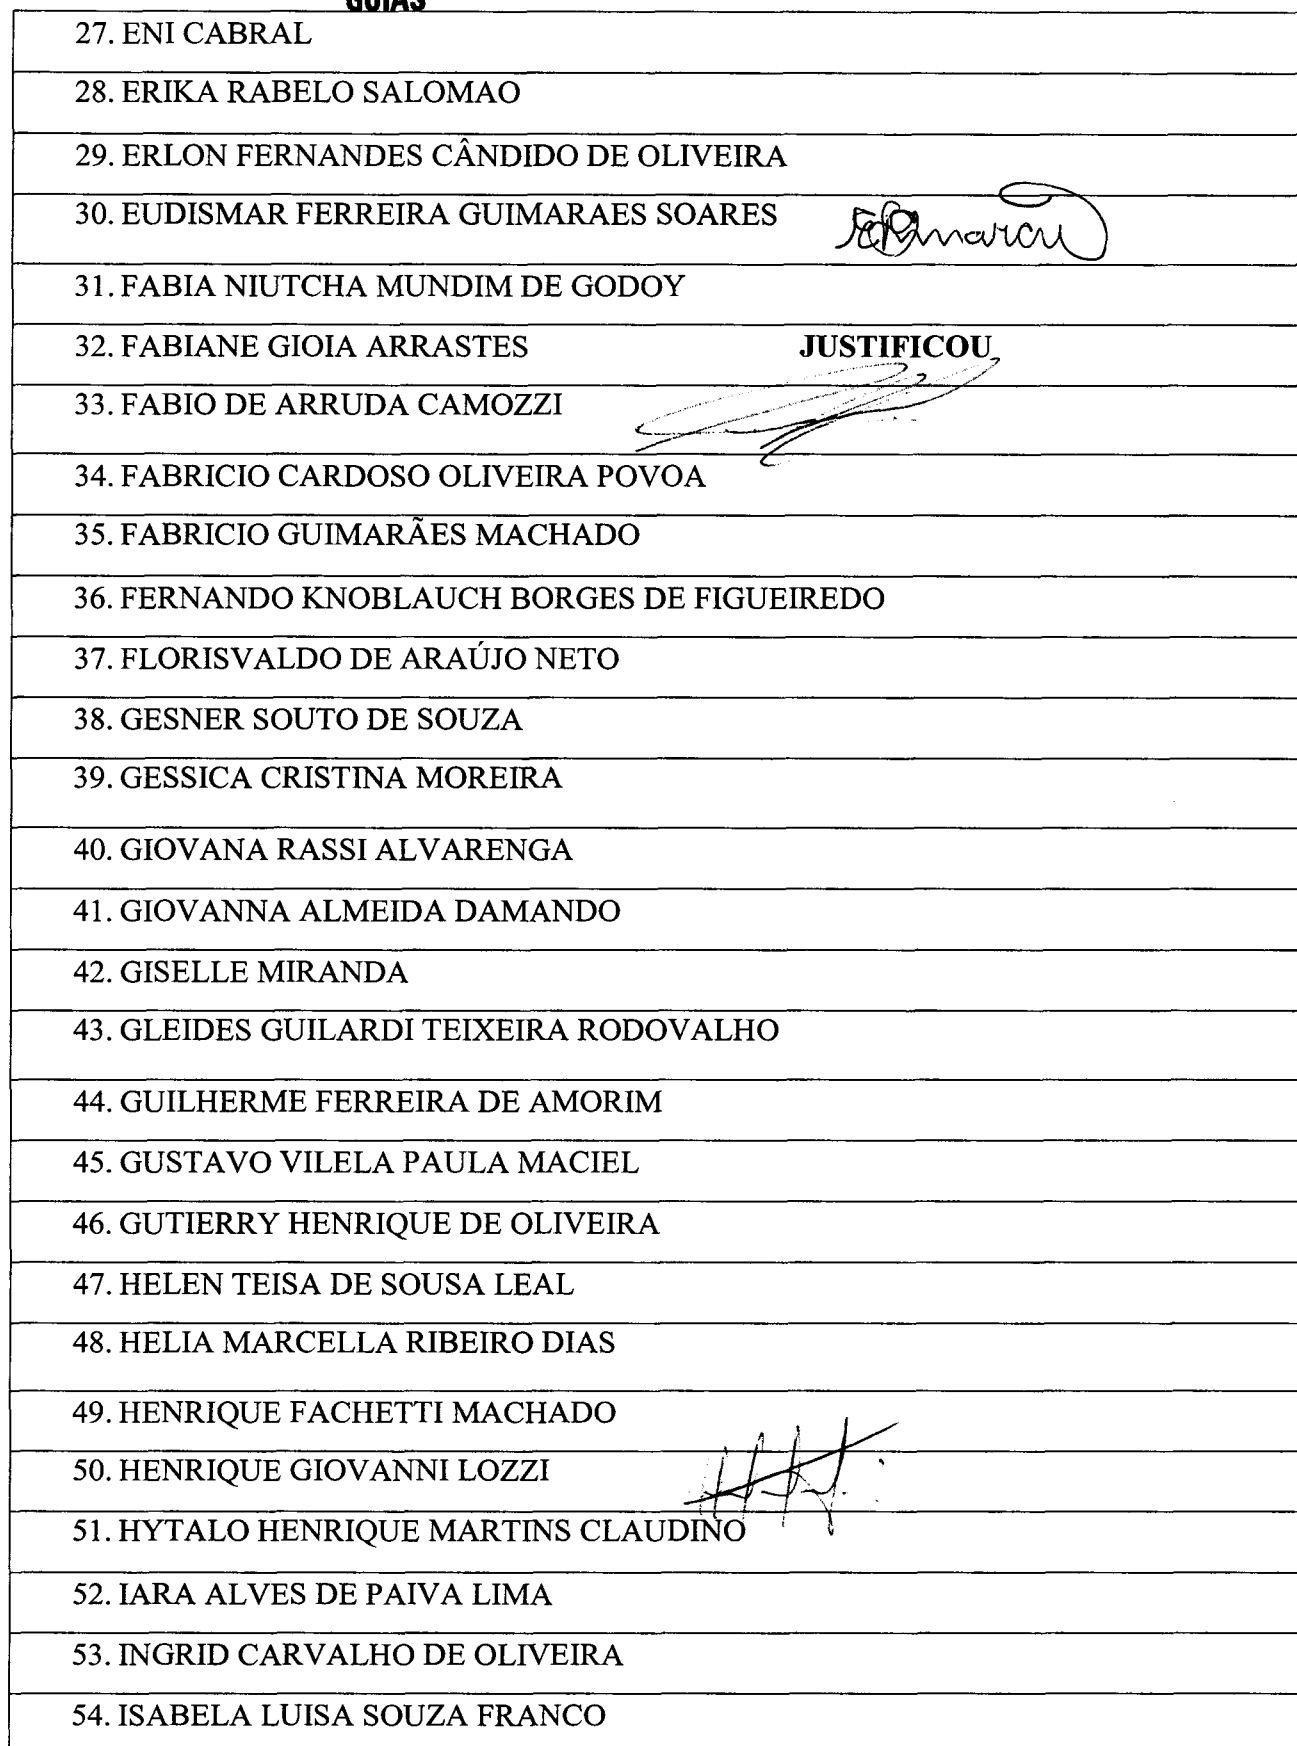 GOIÁS
27. ENI CABRAL
28. ERIKA RABELO SALOMAO
29. ERLON FERNANDES CÂNDIDO DE OLIVEIRA
30. EUDISMAR FERREIRA GUIMARAES SOARES
31. FABIA NIUTCHA MUNDIM DE GODOY
32. FABIANE GIOIA ARRASTES JUSTIFICOU
33. FABIO DE ARRUDA CAMOZZI
34. FABRICIO CARDOSO OLIVEIRA POVOA
35. FABRICIO GUIMARÃES MACHADO
36. FERNANDO KNOBLAUCH BORGES DE FIGUEIREDO
37. FLORISVALDO DE ARAÚJO NETO
38. GESNER SOUTO DE SOUZA
39. GESSICA CRISTINA MOREIRA
40. GIOVANA RASSI ALVARENGA
41. GIOVANNA ALMEIDA DAMANDO
42. GISELLE MIRANDA
43. GLEIDES GUILARDI TEIXEIRA RODOVALHO
44. GUILHERME FERREIRA DE AMORIM
45. GUSTAVO VILELA PAULA MACIEL
46. GUTIERRY HENRIQUE DE OLIVEIRA
47. HELEN TEISA DE SOUSA LEAL
48. HELIA MARCELLA RIBEIRO DIAS
49. HENRIQUE FACHETTI MACHADO
50. HENRIQUE GIOVANNI LOZZI
51. HYTALO HENRIQUE MARTINS CLAUDINO
52. IARA ALVES DE PAIVA LIMA
53. INGRID CARVALHO DE OLIVEIRA
54. ISABELA LUISA SOUZA FRANCO